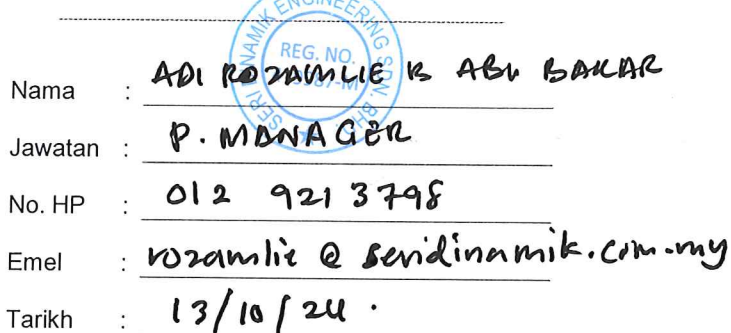 SERI DINAMIK ENGINEERING SDN. BHD
REG. NO.
Nama : ADI ROZAMLIE B ABU BAKAR
Jawatan : P. MANAGER
No. HP : 012 921 3798
Emel : rozamlie @ seridinamik.com.my
Tarikh : 13/10/24.